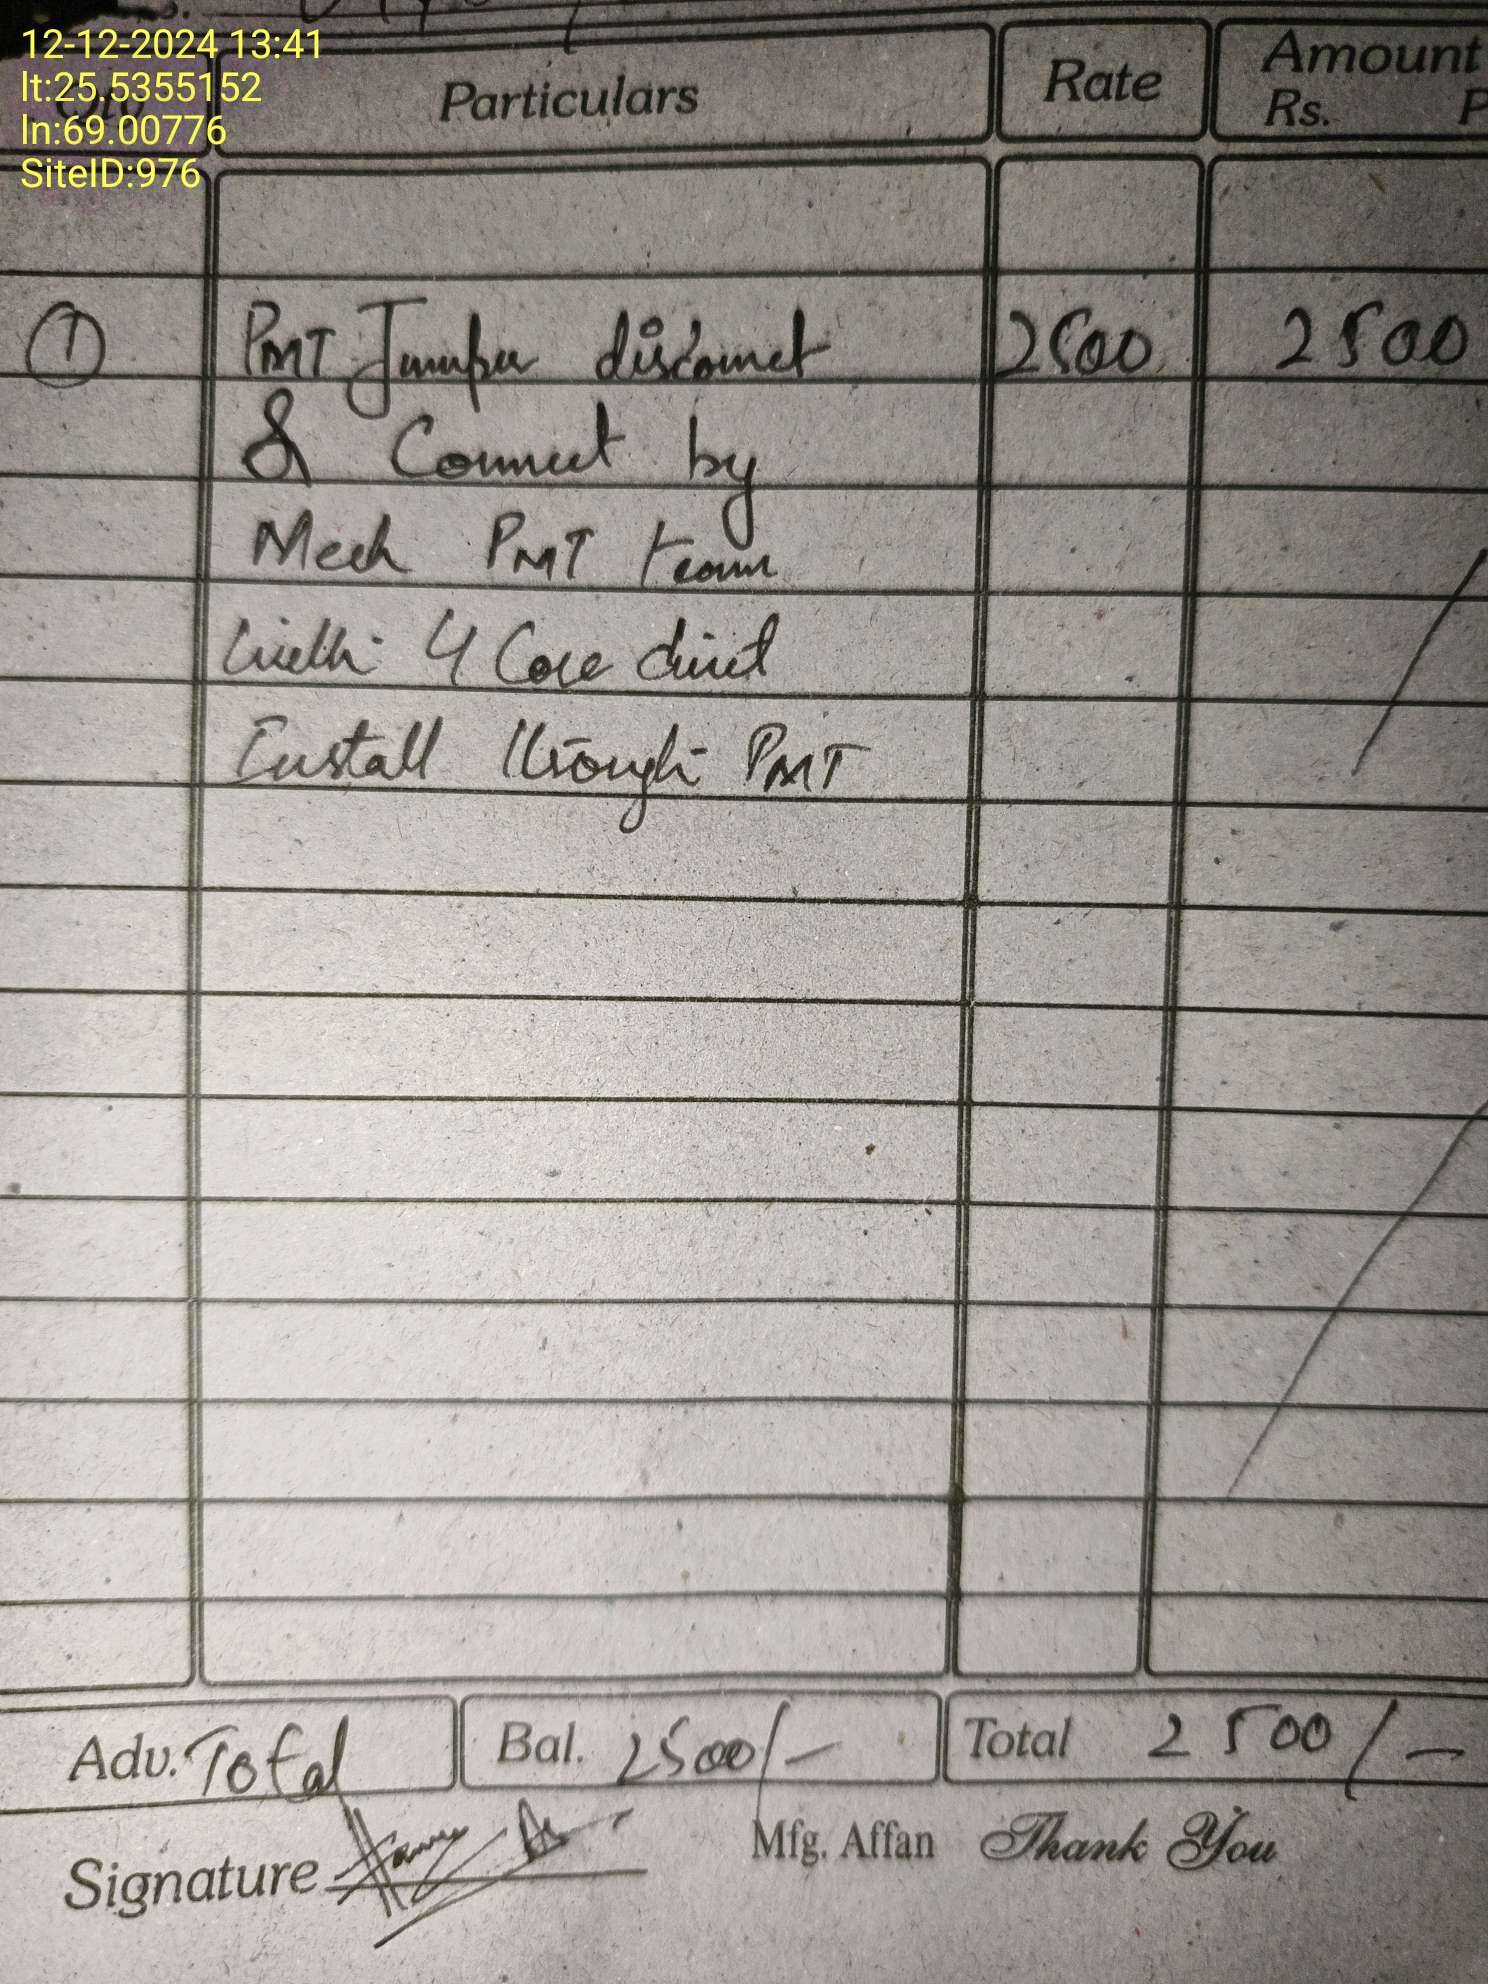 12-12-2024 13:41
lt:25.5355152
ln:69.00776
SiteID:976
Qty Particulars Rate Amount
Rs. P
1 PMT Jumper disconnect 2500 2500
& Connect by
Mech PMT team
with 4 Core direct
Install through PMT
Adv. Total Bal. 2500/- Total 2500/-
Signature Mfg. Affan Thank You